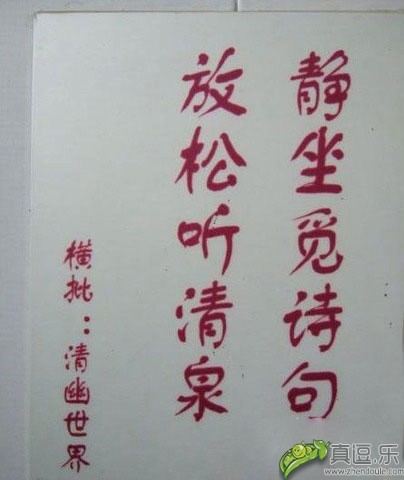 静坐觅诗句
放松听清泉
横批：清幽世界
真逗.乐
www.zhendoule.com